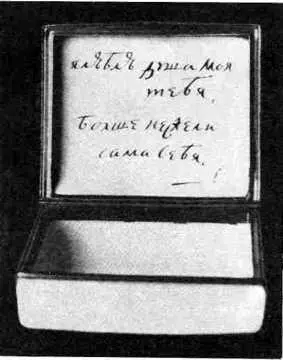 ялъблъ душа моя
тебя.
болше нежели
сама себя.